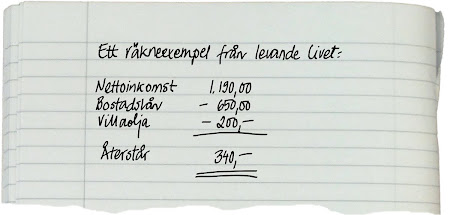 Ett räkneexempel från levande livet:
Nettoinkomst 1.190,00
Bostadslån - 650,00
Villaolja - 200,-
Återstår 340,-